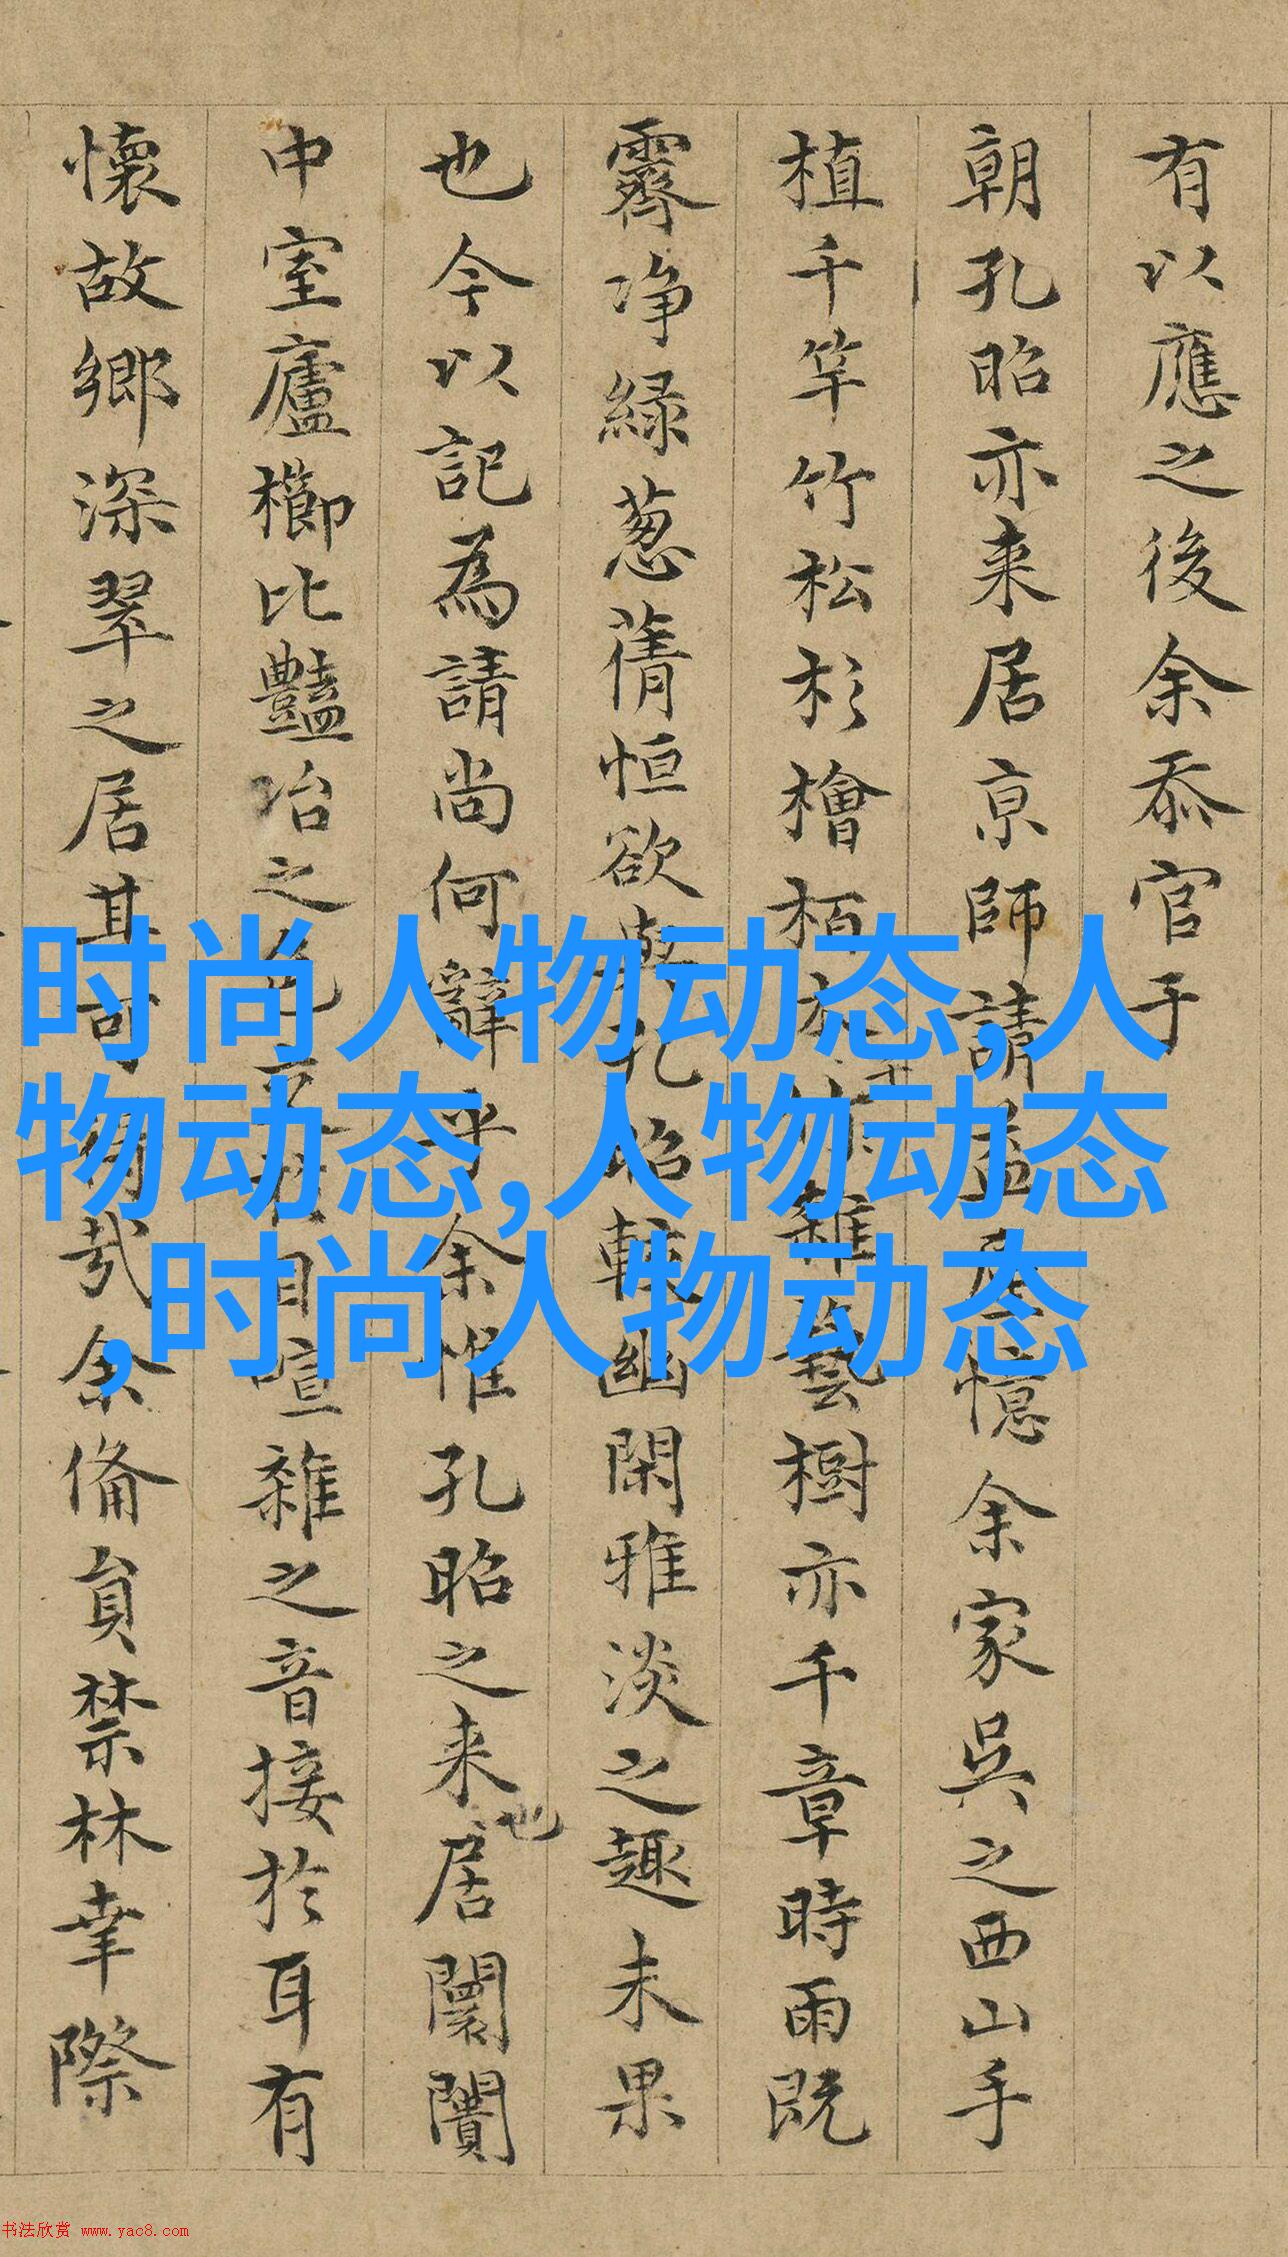 有以應之後余忝官于
朝孔昭亦来居京師請孟居憶余家吳之西山手
植千竿竹松杉檜栢雜藝樹亦千章時雨既
霽净綠葱蒨恒欲孔昭較幽閑雅淡之趣未果
也今以記為請尚何辭乎余惟孔昭之来居闤闠
也
中室廬櫛比豔冶之色目喧雜之音接於耳有
懷故鄉深翠之居其可得哉余備員禁林幸際
时尚人物动态,人
物动态,人物动态
,时尚人物动态
书法欣赏 www.yac8.com